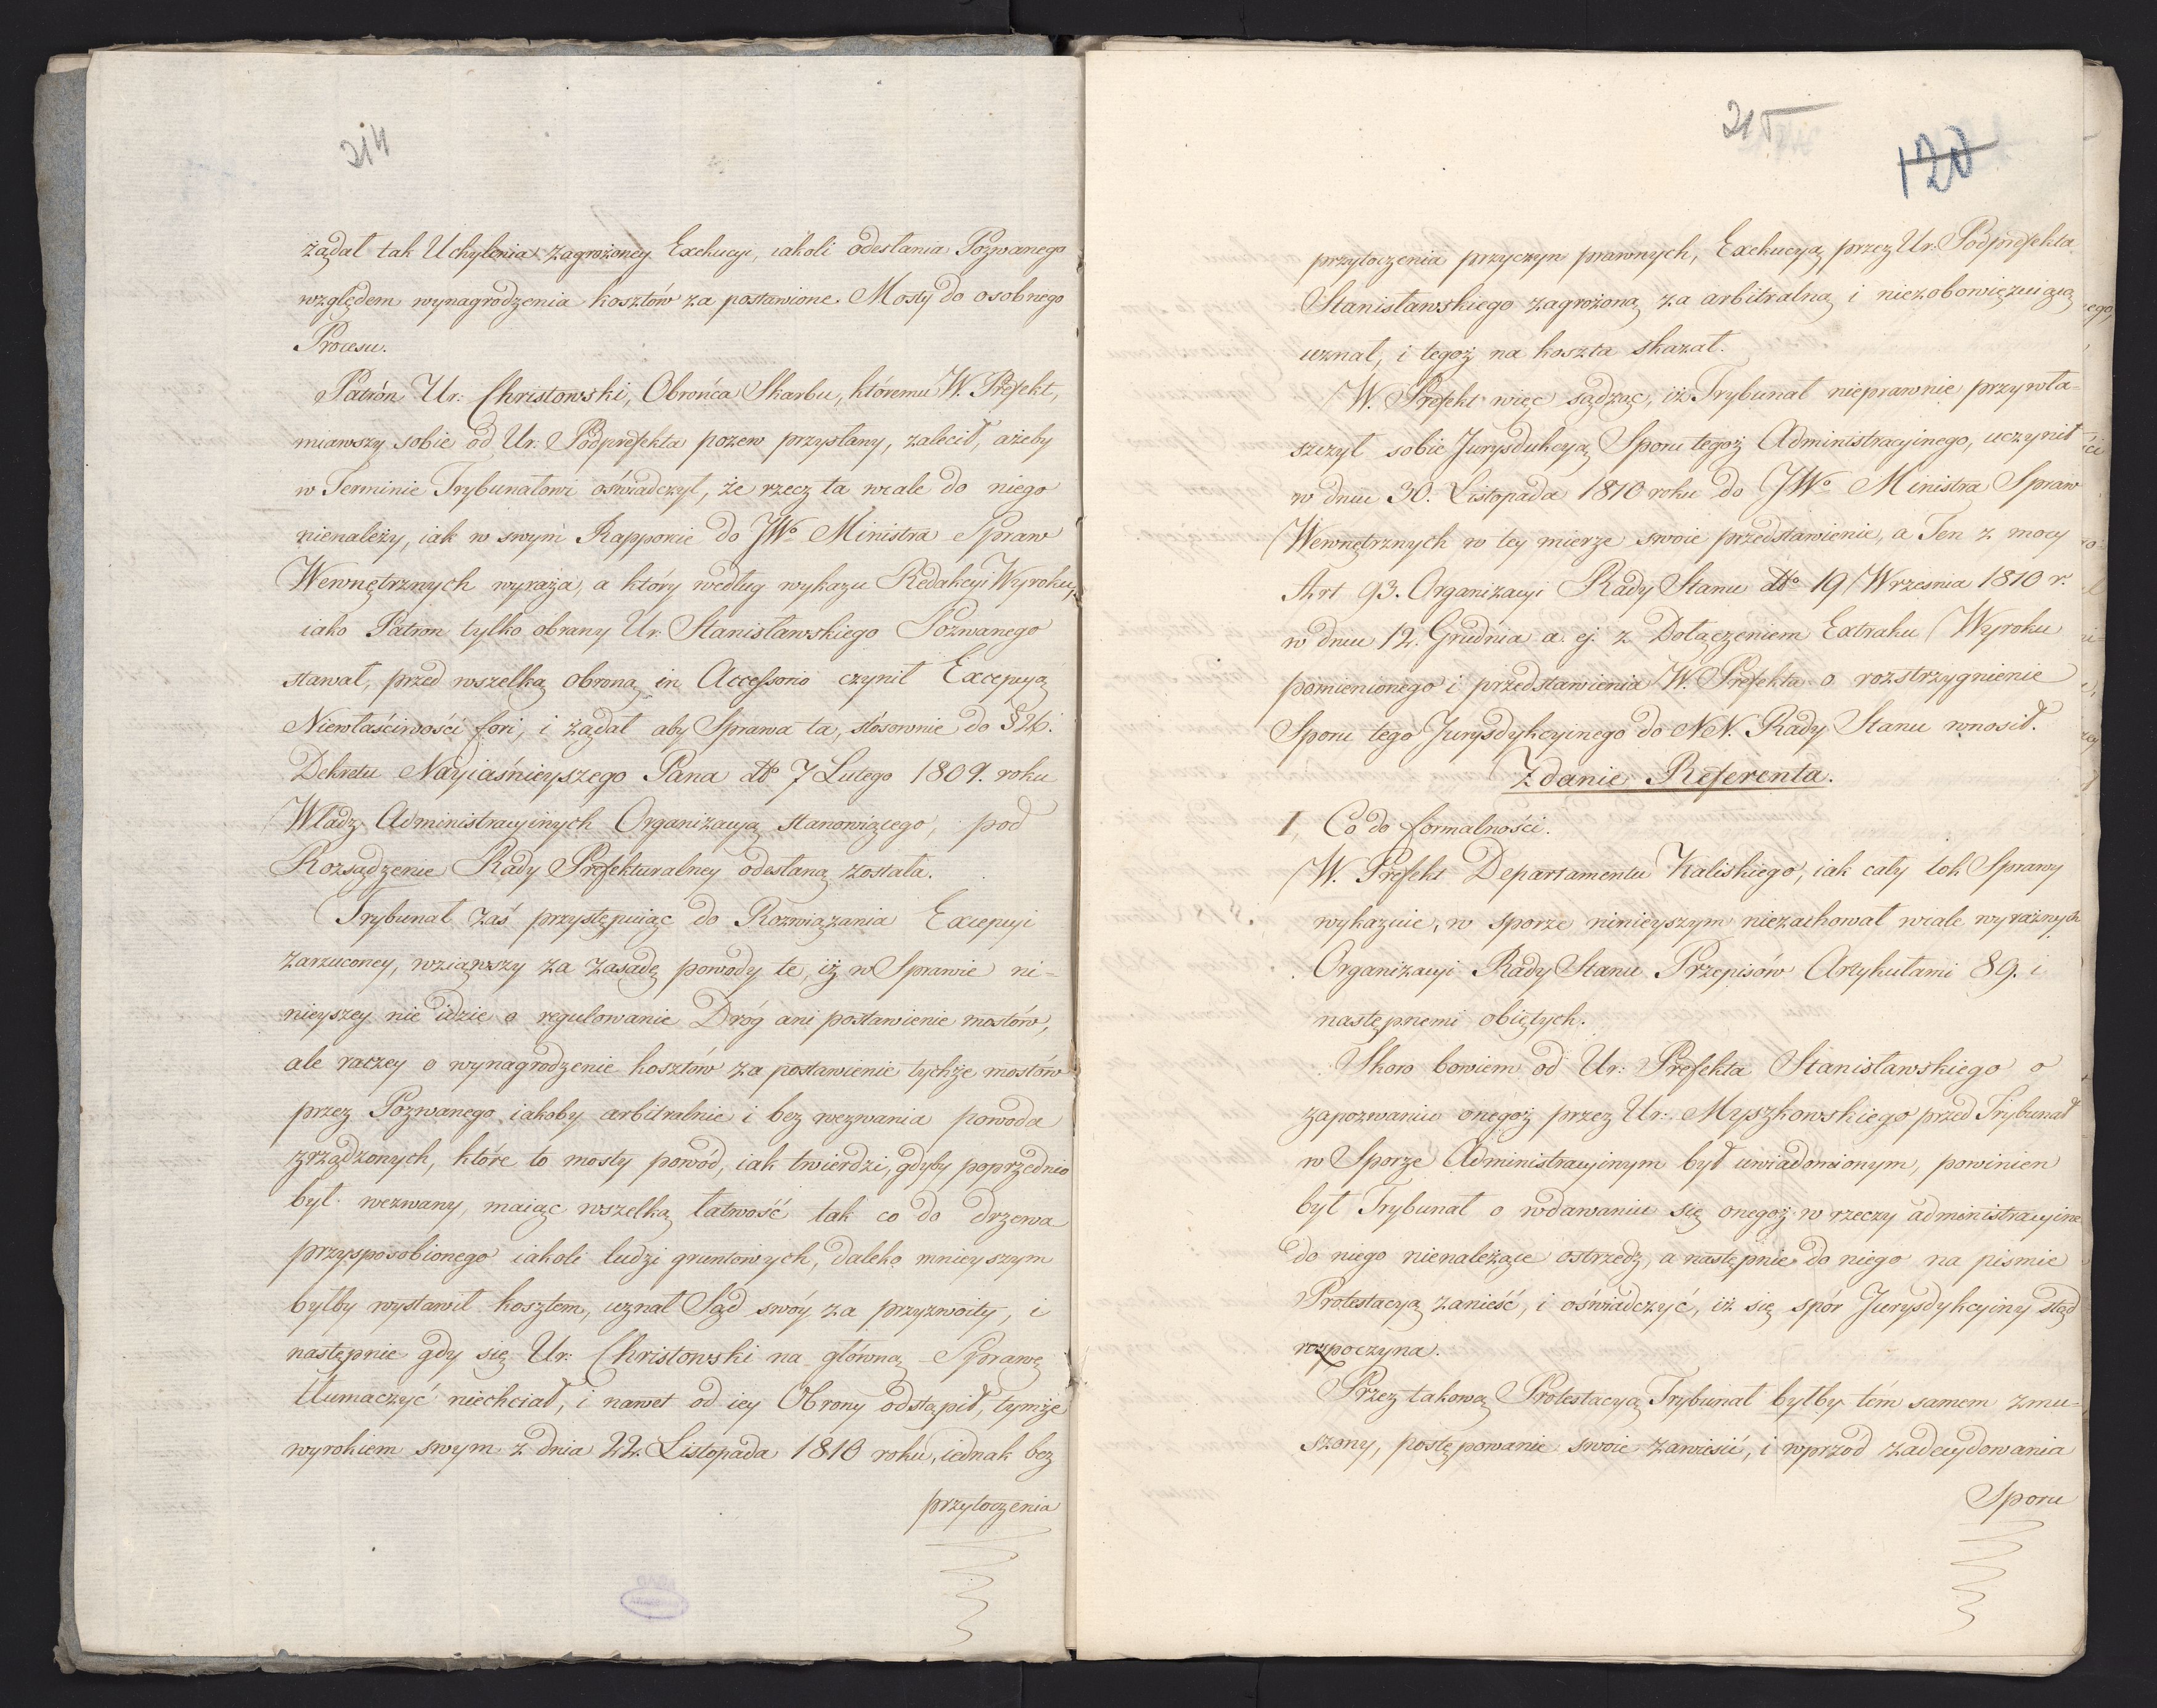 214
żądał tak Uchylenia zagrożoney Exekucyi, iakoli odesłania Pozwanego
względem wynagrodzenia kosztów za postawione Mosty do osobnego
Procesu.
Patrón Ur: Christowski, Obrońca Skarbu, któremu W. Prefekt,
miawszy sobie od Ur: Podprefekta pozew przysłany, zalecił, ażeby
w Terminie Trybunałowi oświadczył, że rzecz ta wcale do niego
nienależy, iak w swym Rapporcie do JWo Ministra Spraw
Wewnętrznych wyraża, a który według wykazu Redakcyi Wyroku,
iako Patron tylko obrany Ur. Stanisławskiego Pozwanego
stawał, przed wszelką obroną in Accessorio czynił Excepcyą
Niewłaściwości fori, i żądał aby Sprawa ta, stósownie do § 26.
Dekretu Nayiaśnieyszego Pana dto 7 Lutego 1809. roku
Władz Administracyinych Organizacyą stanowiącego, pod
Rozsądzenie Rady Prefekturalney odesłaną została.
Trybunał zaś przystępuiąc do Rozwiązania Excepcyi
zarzuconey, wziąwszy za zasadę powody te, iż w Sprawie ni=
nieyszey nie idzie o regulowanie Dróg ani postawienie mostów,
ale raczey o wynagrodzenie kosztów za postawienie tychże mostów
przez Pozwanego iakoby arbitralnie i bez wezwania powoda
zrządzonych, które to mosty powód, iak twierdzi, gdyby poprzednio
był wezwany, maiąc wszelką łatwość tak co do drzewa
przysposobionego iakoli ludzi gruntowych, daleko mnieyszym
byłby wystawił kosztem, uznał Sąd swóy za przyzwoity, i
następnie gdy się Ur: Christowski na główną Sprawę
tłumaczyć niechciał, i nawet od iey Obrony odstąpił, tymże
wyrokiem swym z dnia 22. Listopada 1810 roku, iednak bez
przytoczenia
215
120
przytoczenia przyczyn prawnych, Exekucyą przez Ur: Podprefekta
Stanisławskiego zagrożoną za arbitralną i niezobowięzuiącą
uznał, i tegoż na koszta skazał.
W. Prefekt więc sądząc, iż Trybunał nieprawnie przywła=
szczył sobie Jurysdukcyą Sporu tegoż Administracyinego, uczynił
w dniu 30. Listopada 1810 roku do JWo Ministra Spraw
Wewnętrznych w tey mierze swoie przedstawienie, a Ten z mocy
Art 93. Organizacyi Rady Stanu dto 19 Wrzesnia 1810 r.
w dniu 12. Grudnia a. ej. z Dołączeniem Extraktu Wyroku
pomienionego i przedstawienia W. Prefekta o rozstrzygnienie
Sporu tego Jurysdykcyinego do NN. Rady Stanu wnosił.
Zdanie Referenta.
I, Co do formalności.
W. Prefekt Departamentu Kaliskiego, iak cały tok Sprawy
wykazuie, w sporze ninieyszym niezachował wcale wyraźnych
Organizacyi Rady Stanu Przepisów Artykułami 89. i
następnemi obiętych.
Skoro bowiem od Ur: Prefekta Stanisławskiego o
zapozwaniu onegoż przez Ur: Myszkowskiego przed Trybunał
w Sporze Administracyinym był uwiadomionym, powinien
był Trybunał o wdawaniu się onegoż w rzeczy administracyine
do niego nienależące ostrzedz, a następnie do niego na pismie
Protestacyą zanieść, i oświadczyć, iż się spór Jurysdykcyiny stąd
rozpoczyna.
Przez takową Protestacyą Trybunał byłby tém samem zmu=
szony, postępowanie swoie zawiesić, i wprzod zadecydowania
Sporu